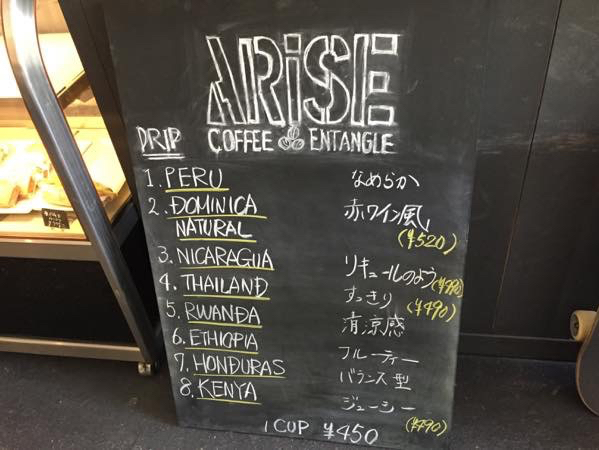 ARiSE
COFFEE ENTANGLE
DRIP
1. PERU なめらか
2. DOMINICA NATURAL 赤ワイン風 (¥520)
3. NICARAGUA リキュールのよう (¥490)
4. THAILAND すっきり (¥490)
5. RWANDA 清涼感
6. ETHIOPIA フルーティー
7. HONDURAS バランス型
8. KENYA ジューシー (¥490)
1 CUP ¥450